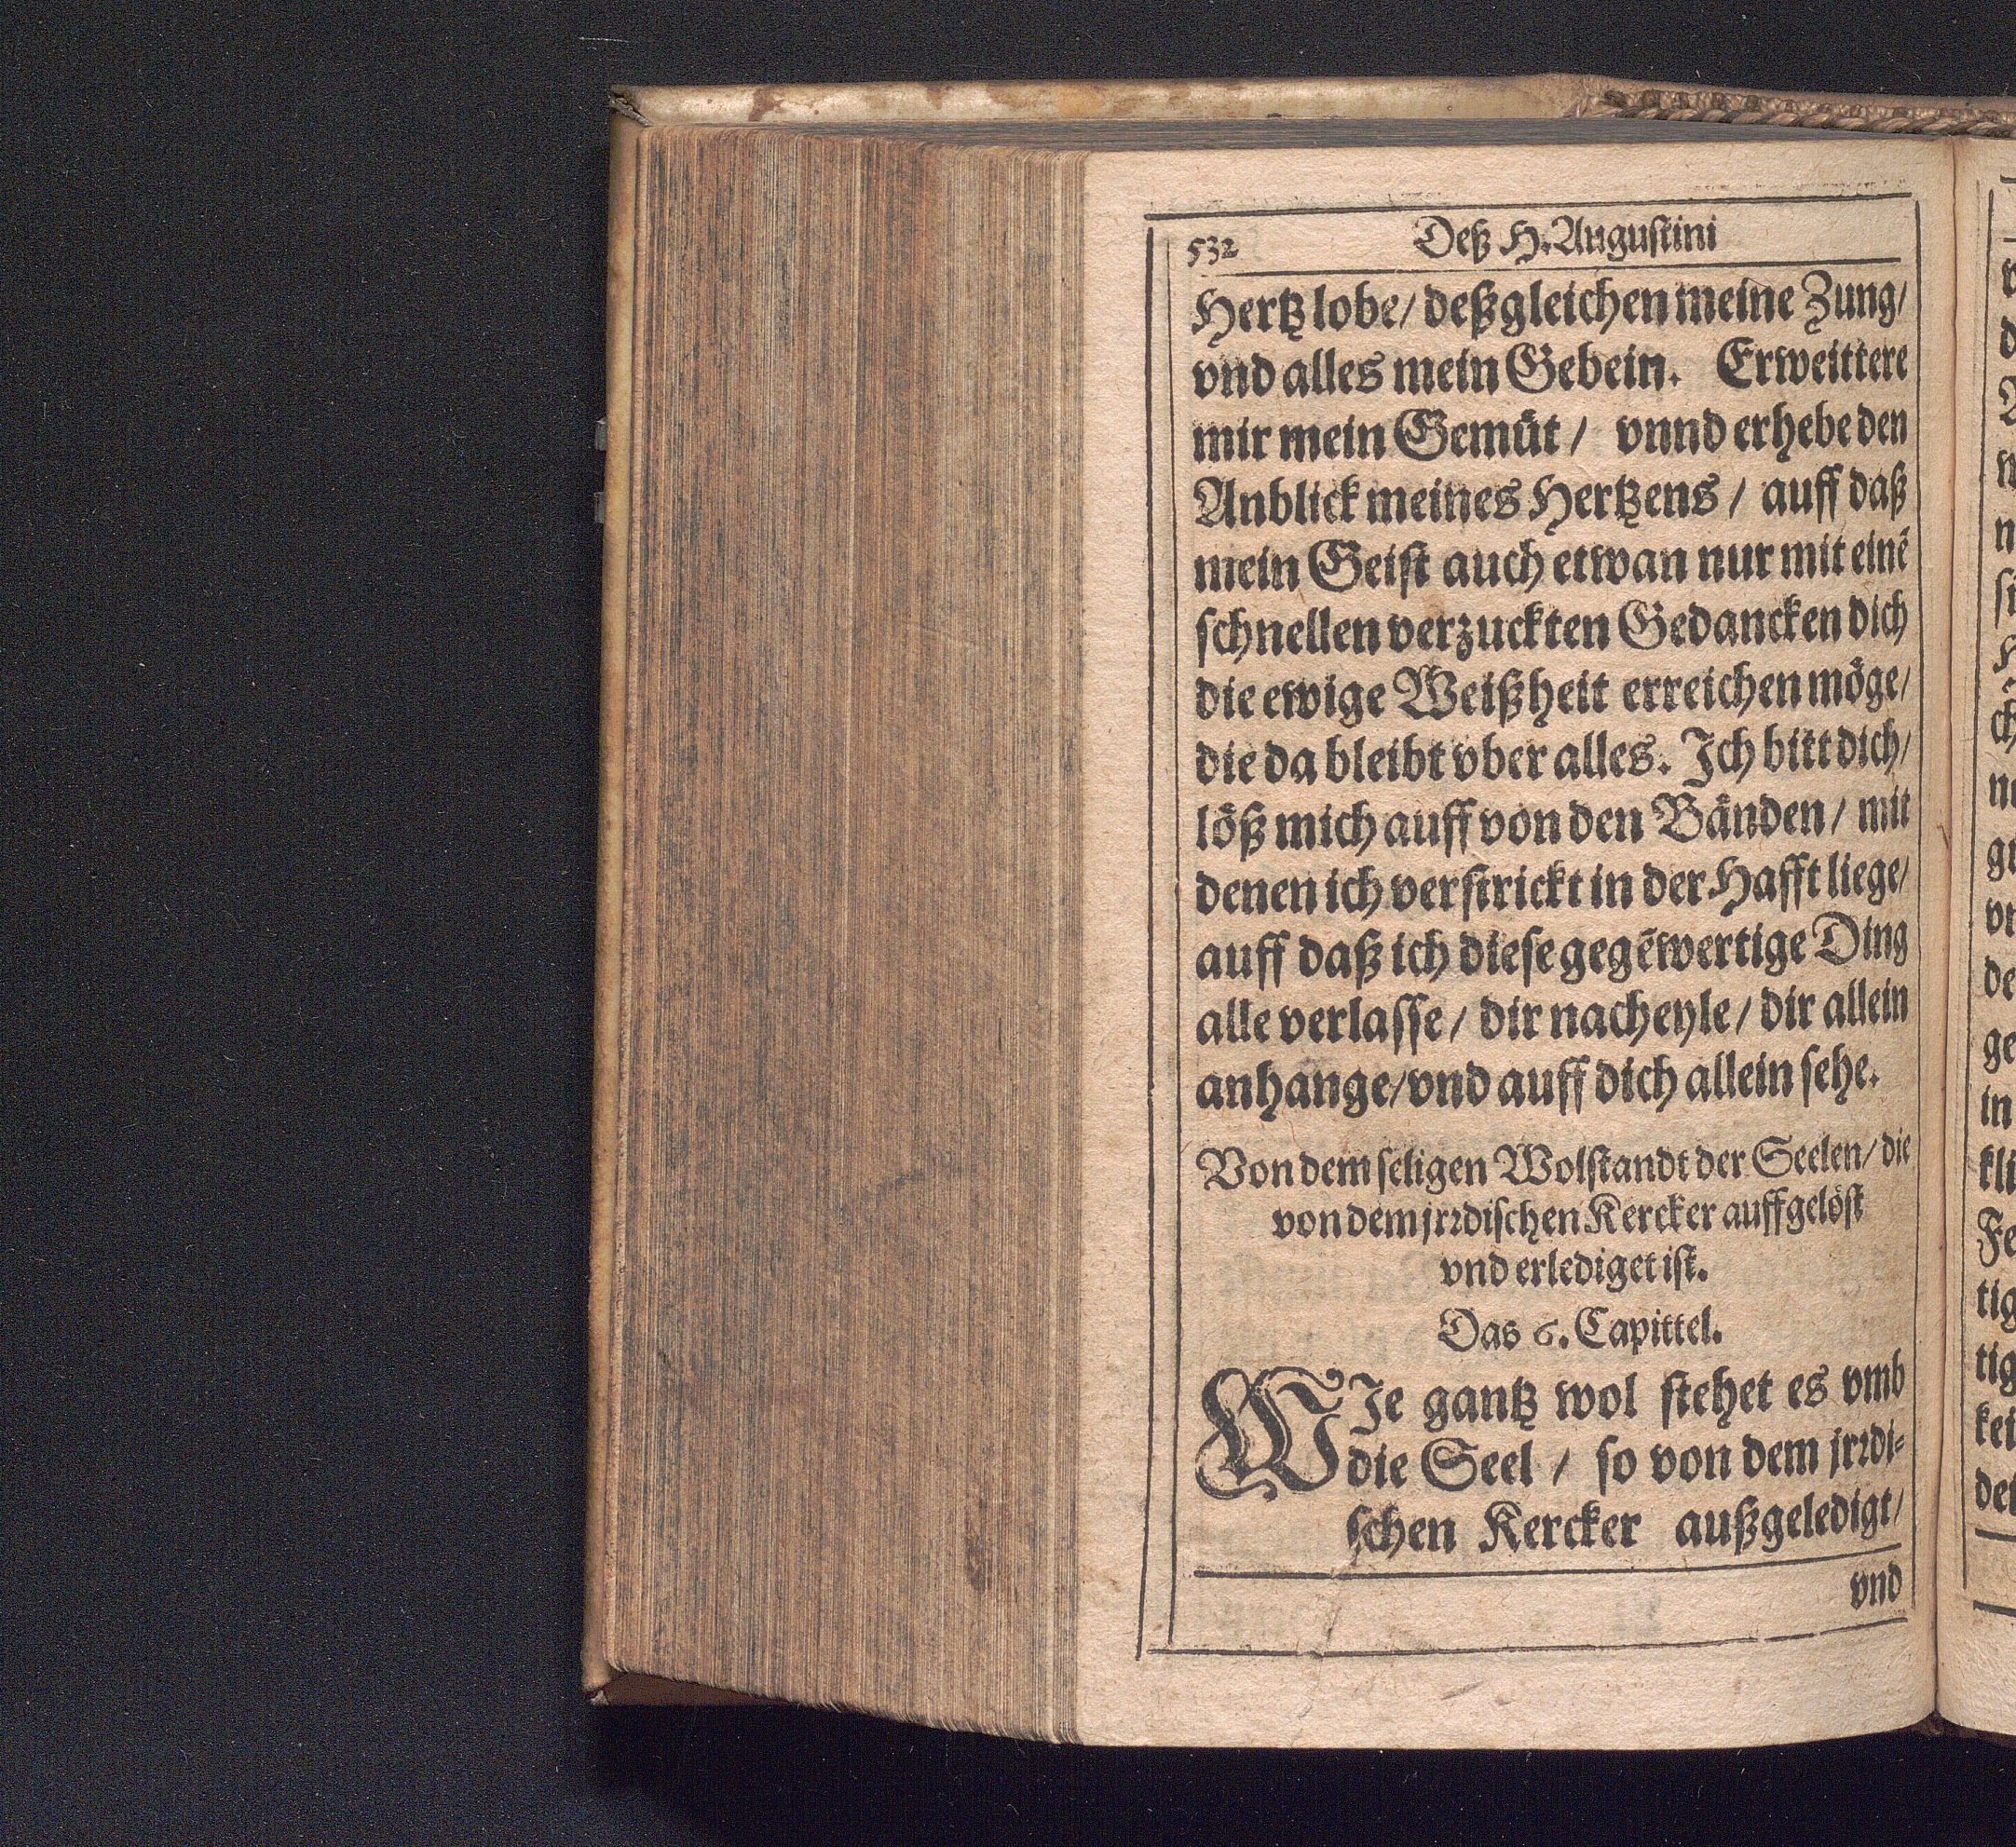 532 Deß H. Augustini
Hertz lobe/ deßgleichen meine Zung/
vnd alles mein Gebein. Erweittere
mir mein Gemüt / vnnd erhebe den
Anblick meines Hertzens / auff daß
mein Geist auch etwan nur mit einẽ
schnellen verzuckten Gedancken dich
die ewige Weißheit erreichen möge/
die da bleibt vber alles. Ich bitt dich/
löß mich auff von den Bänden / mit
denen ich verstrickt in der Hafft liege/
auff daß ich diese gegẽwertige Ding
alle verlasse / dir nacheyle / dir allein
anhange/vnd auff dich allein sehe.
Von dem seligen Wolstandt der Seelen/ die
von dem jrꝛdischen Kercker auffgelöst
vnd erlediget ist.
Das 6. Capittel.
WIe gantz wol stehet es vmb
die Seel / so von dem jrꝛdi-
schen Kercker außgeledigt/
vnd